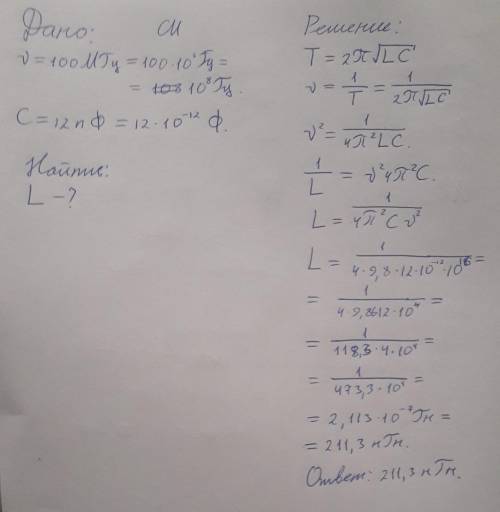 Дано: СИ
ν = 100 МГц = 100·10⁶ Гц =
= 10⁸ Гц.
C = 12 пФ = 12·10⁻¹² Ф.
Найти:
L - ?
Решение:
T = 2π√LC
ν = 1/T = 1/2π√LC
ν² = 1/4π²LC.
1/L = ν²4π²C.
L = 1/4π²Cν²
L = 1/4·9,8·12·10⁻¹²·10¹⁶ =
= 1/4·9,8612·10⁴ =
= 1/118,3·4·10⁴ =
= 1/473,3·10⁴ =
= 2,113·10⁻⁷ Гн =
= 211,3 нГн.
Ответ: 211,3 нГн.